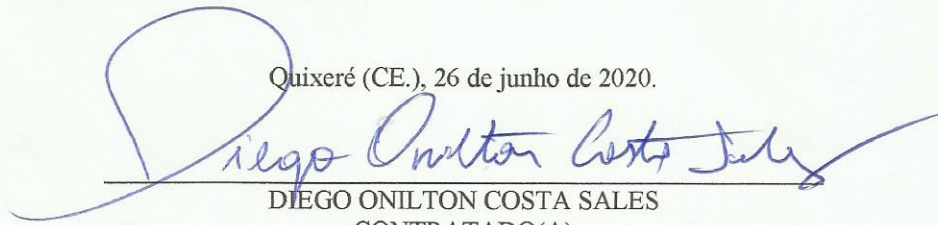 Quixeré (CE.), 26 de junho de 2020.
Diego Onilton Costa Sales
DIEGO ONILTON COSTA SALES
CONTRATADO(A)